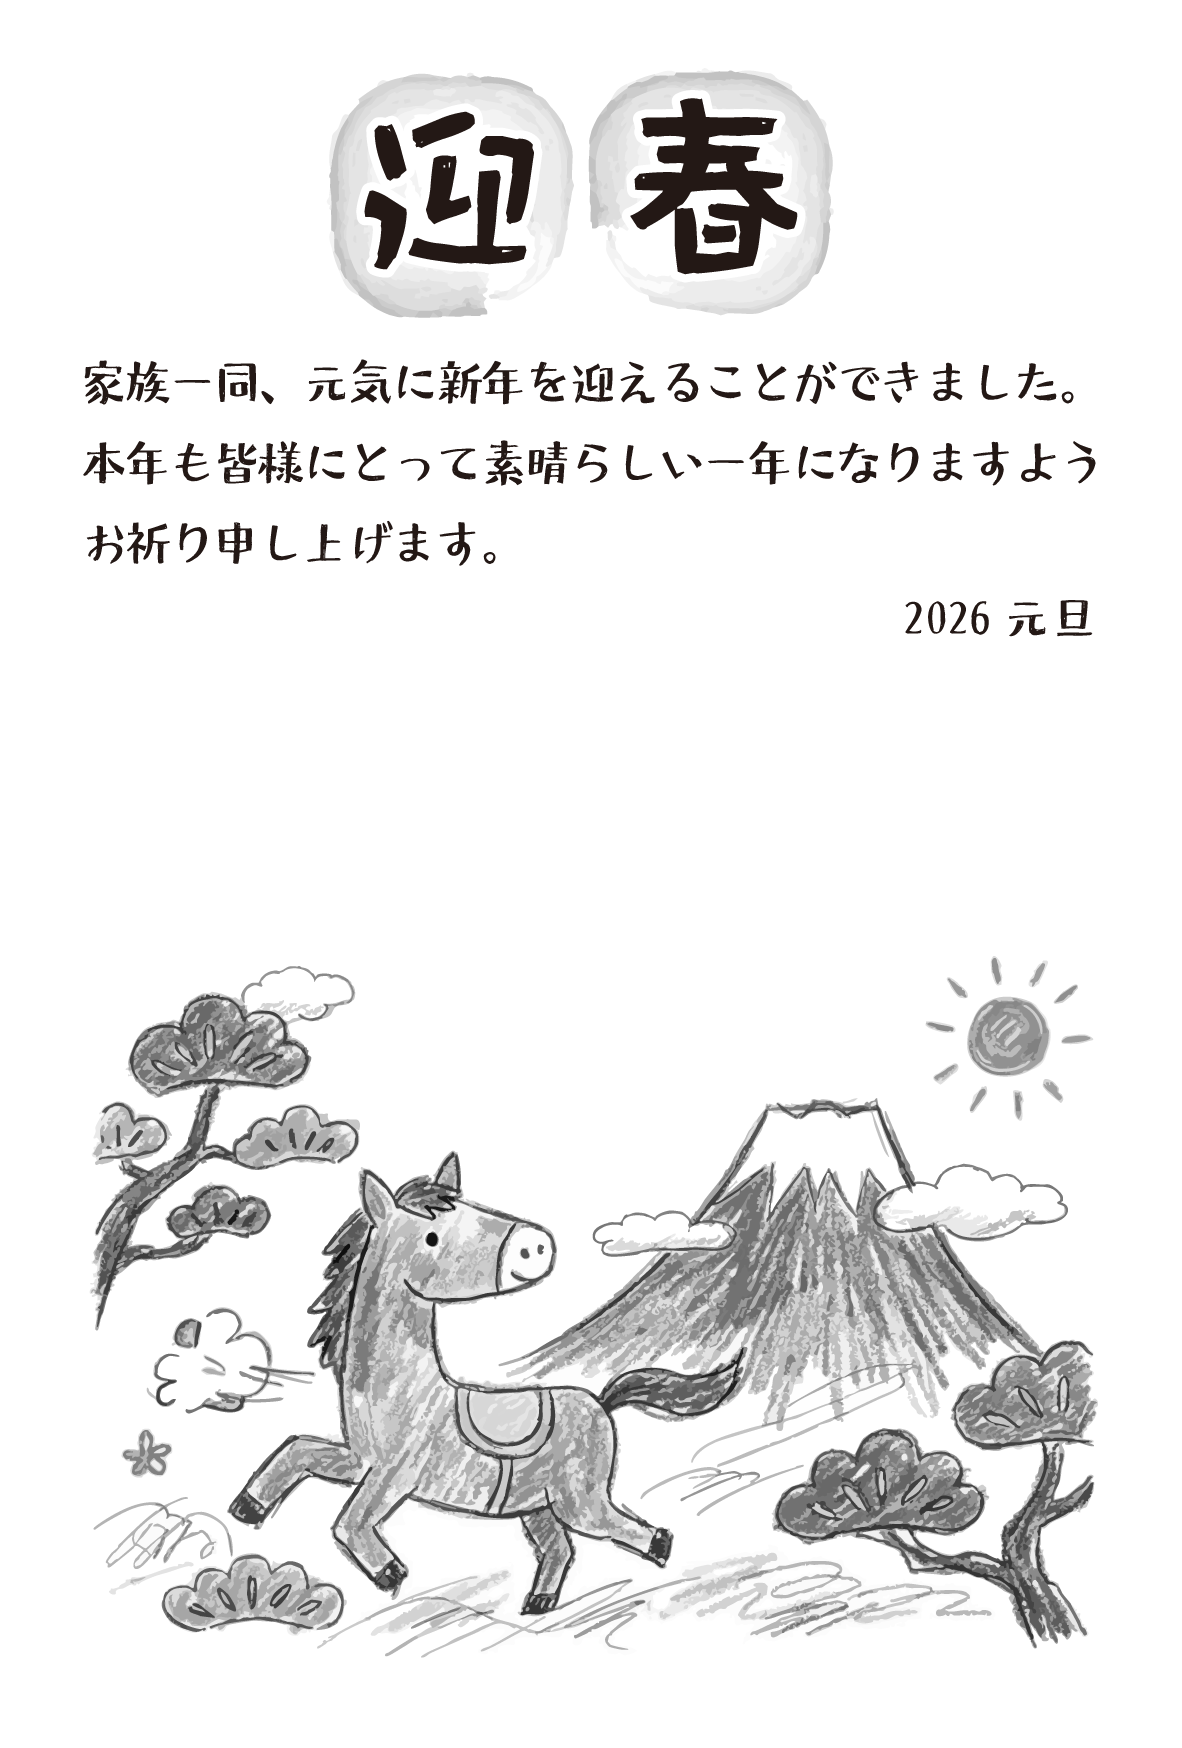 迎春
家族一同、元気に新年を迎えることができました。
本年も皆様にとって素晴らしい一年になりますよう
お祈り申し上げます。
2026 元旦